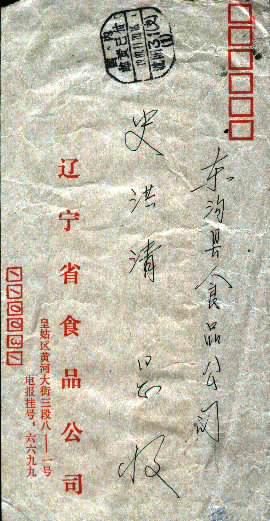 东沟县食品公司
史洪清 吕收
辽宁省食品公司
皇姑区黄河大街三段八——一号
电报挂号：六六九九